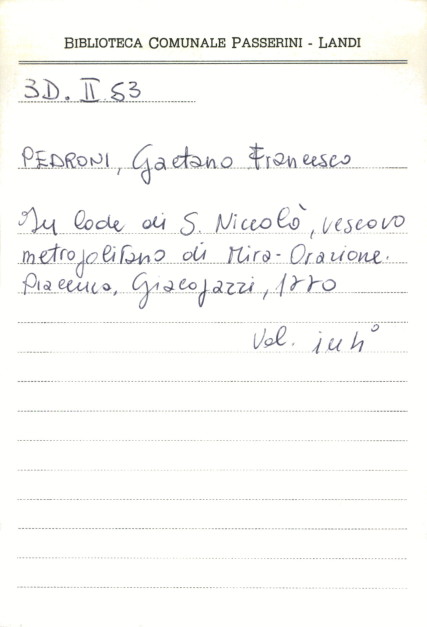 BIBLIOTECA COMUNALE PASSERINI - LANDI
3D. II 53
PEDRONI, Gaetano Francesco
In lode di S. Niccolò, vescovo
metropolitano di Mira - Orazione.
Piacenza, Giacopazzi, 1770
Vol. in 4°